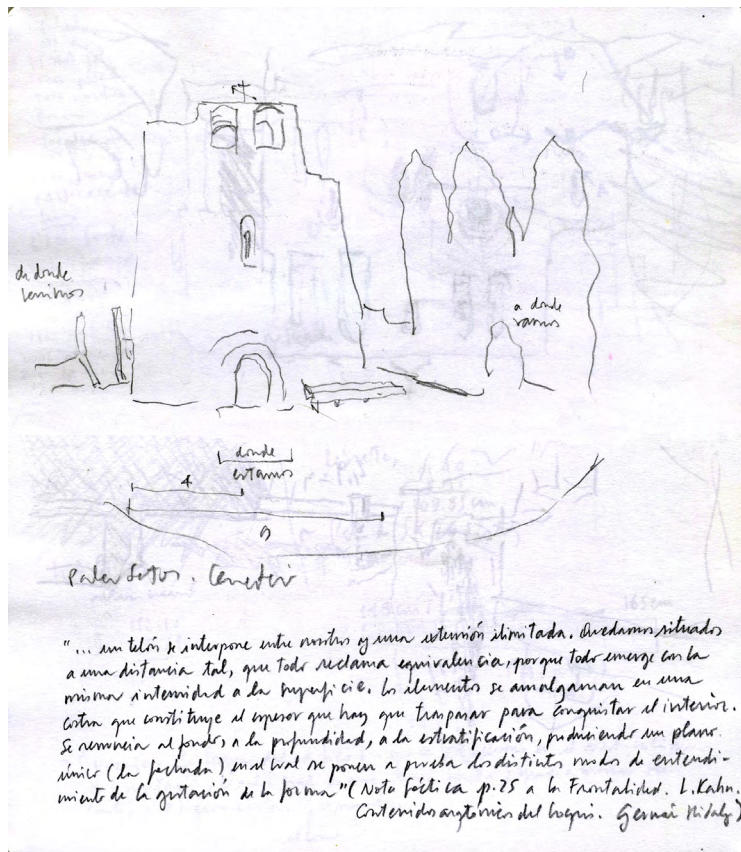 de donde
venimos
a donde
vamos
donde
estamos
4
9
"... un telón se interpone entre nosotros y una extensión ilimitada. Quedamos situados
a una distancia tal, que todo reclama equivalencia, porque todo emerge con la
misma intensidad a la superficie. Los elementos se amalgaman en una
costra que constituye el espesor que hay que traspasar para conquistar el interior.
Se renuncia al fondo, a la profundidad, a la estratificación, produciendo un plano
único (la fachada) en el cual se ponen a prueba los distintos modos de entendi-
miento de la gestación de la forma" (Nota fáctica p.25 a la Frontalidad. L. Kahn.
Contenidos del croquis. Germán Hidalgo)